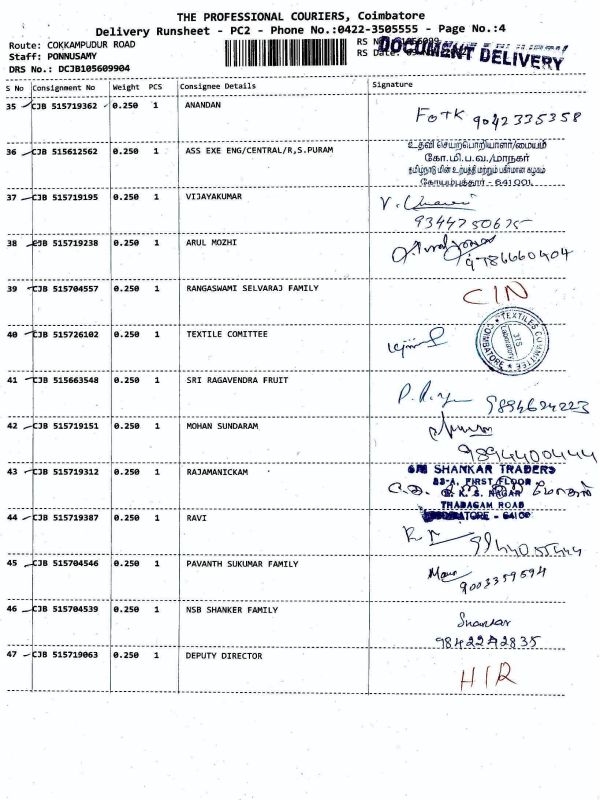 THE PROFESSIONAL COURIERS, Coimbatore
Delivery Runsheet - PC2 - Phone No.:0422-3505555 - Page No.:4
Route: COKKAMPUDUR ROAD
RS N
DOCUMENT DELIVERY
Staff: PONNUSAMY
RS Date:
DRS No.: DCJB105609904
S No Consignment No Weight PCS Consignee Details Signature
35 CJB 515719362 0.250 1 ANANDAN
FOTK 9042335358
36 CJB 515612562 0.250 1 ASS EXE ENG/CENTRAL/R,S.PURAM
உதவி செயற்பொறியாளர்/மையம்
கோ.மி.ப.வ./மாநகர்
தமிழ்நாடு மின் உற்பத்தி மற்றும் பகிர்மான கழகம்
கோயம்புத்தூர் - 641 001.
37 CJB 515719195 0.250 1 VIJAYAKUMAR
9344750675
38 CJB 515719238 0.250 1 ARUL MOZHI
9786660404
39 CJB 515704557 0.250 1 RANGASWAMI SELVARAJ FAMILY
CIN
40 CJB 515726102 0.250 1 TEXTILE COMITTEE
TEXTILES COMMITTEE
COIMBATORE
Laboratory
41 CJB 515663548 0.250 1 SRI RAGAVENDRA FRUIT
9894624223
42 CJB 515719151 0.250 1 MOHAN SUNDARAM
9894400444
43 CJB 515719312 0.250 1 RAJAMANICKAM
SRI SHANKAR TRADERS
83-A, FIRST FLOOR
K. K. S. NAGAR
THADAGAM ROAD
44 CJB 515719387 0.250 1 RAVI
45 CJB 515704546 0.250 1 PAVANTH SUKUMAR FAMILY
9003359594
46 CJB 515704539 0.250 1 NSB SHANKER FAMILY
Shankar
9842242835
47 CJB 515719063 0.250 1 DEPUTY DIRECTOR
HIR